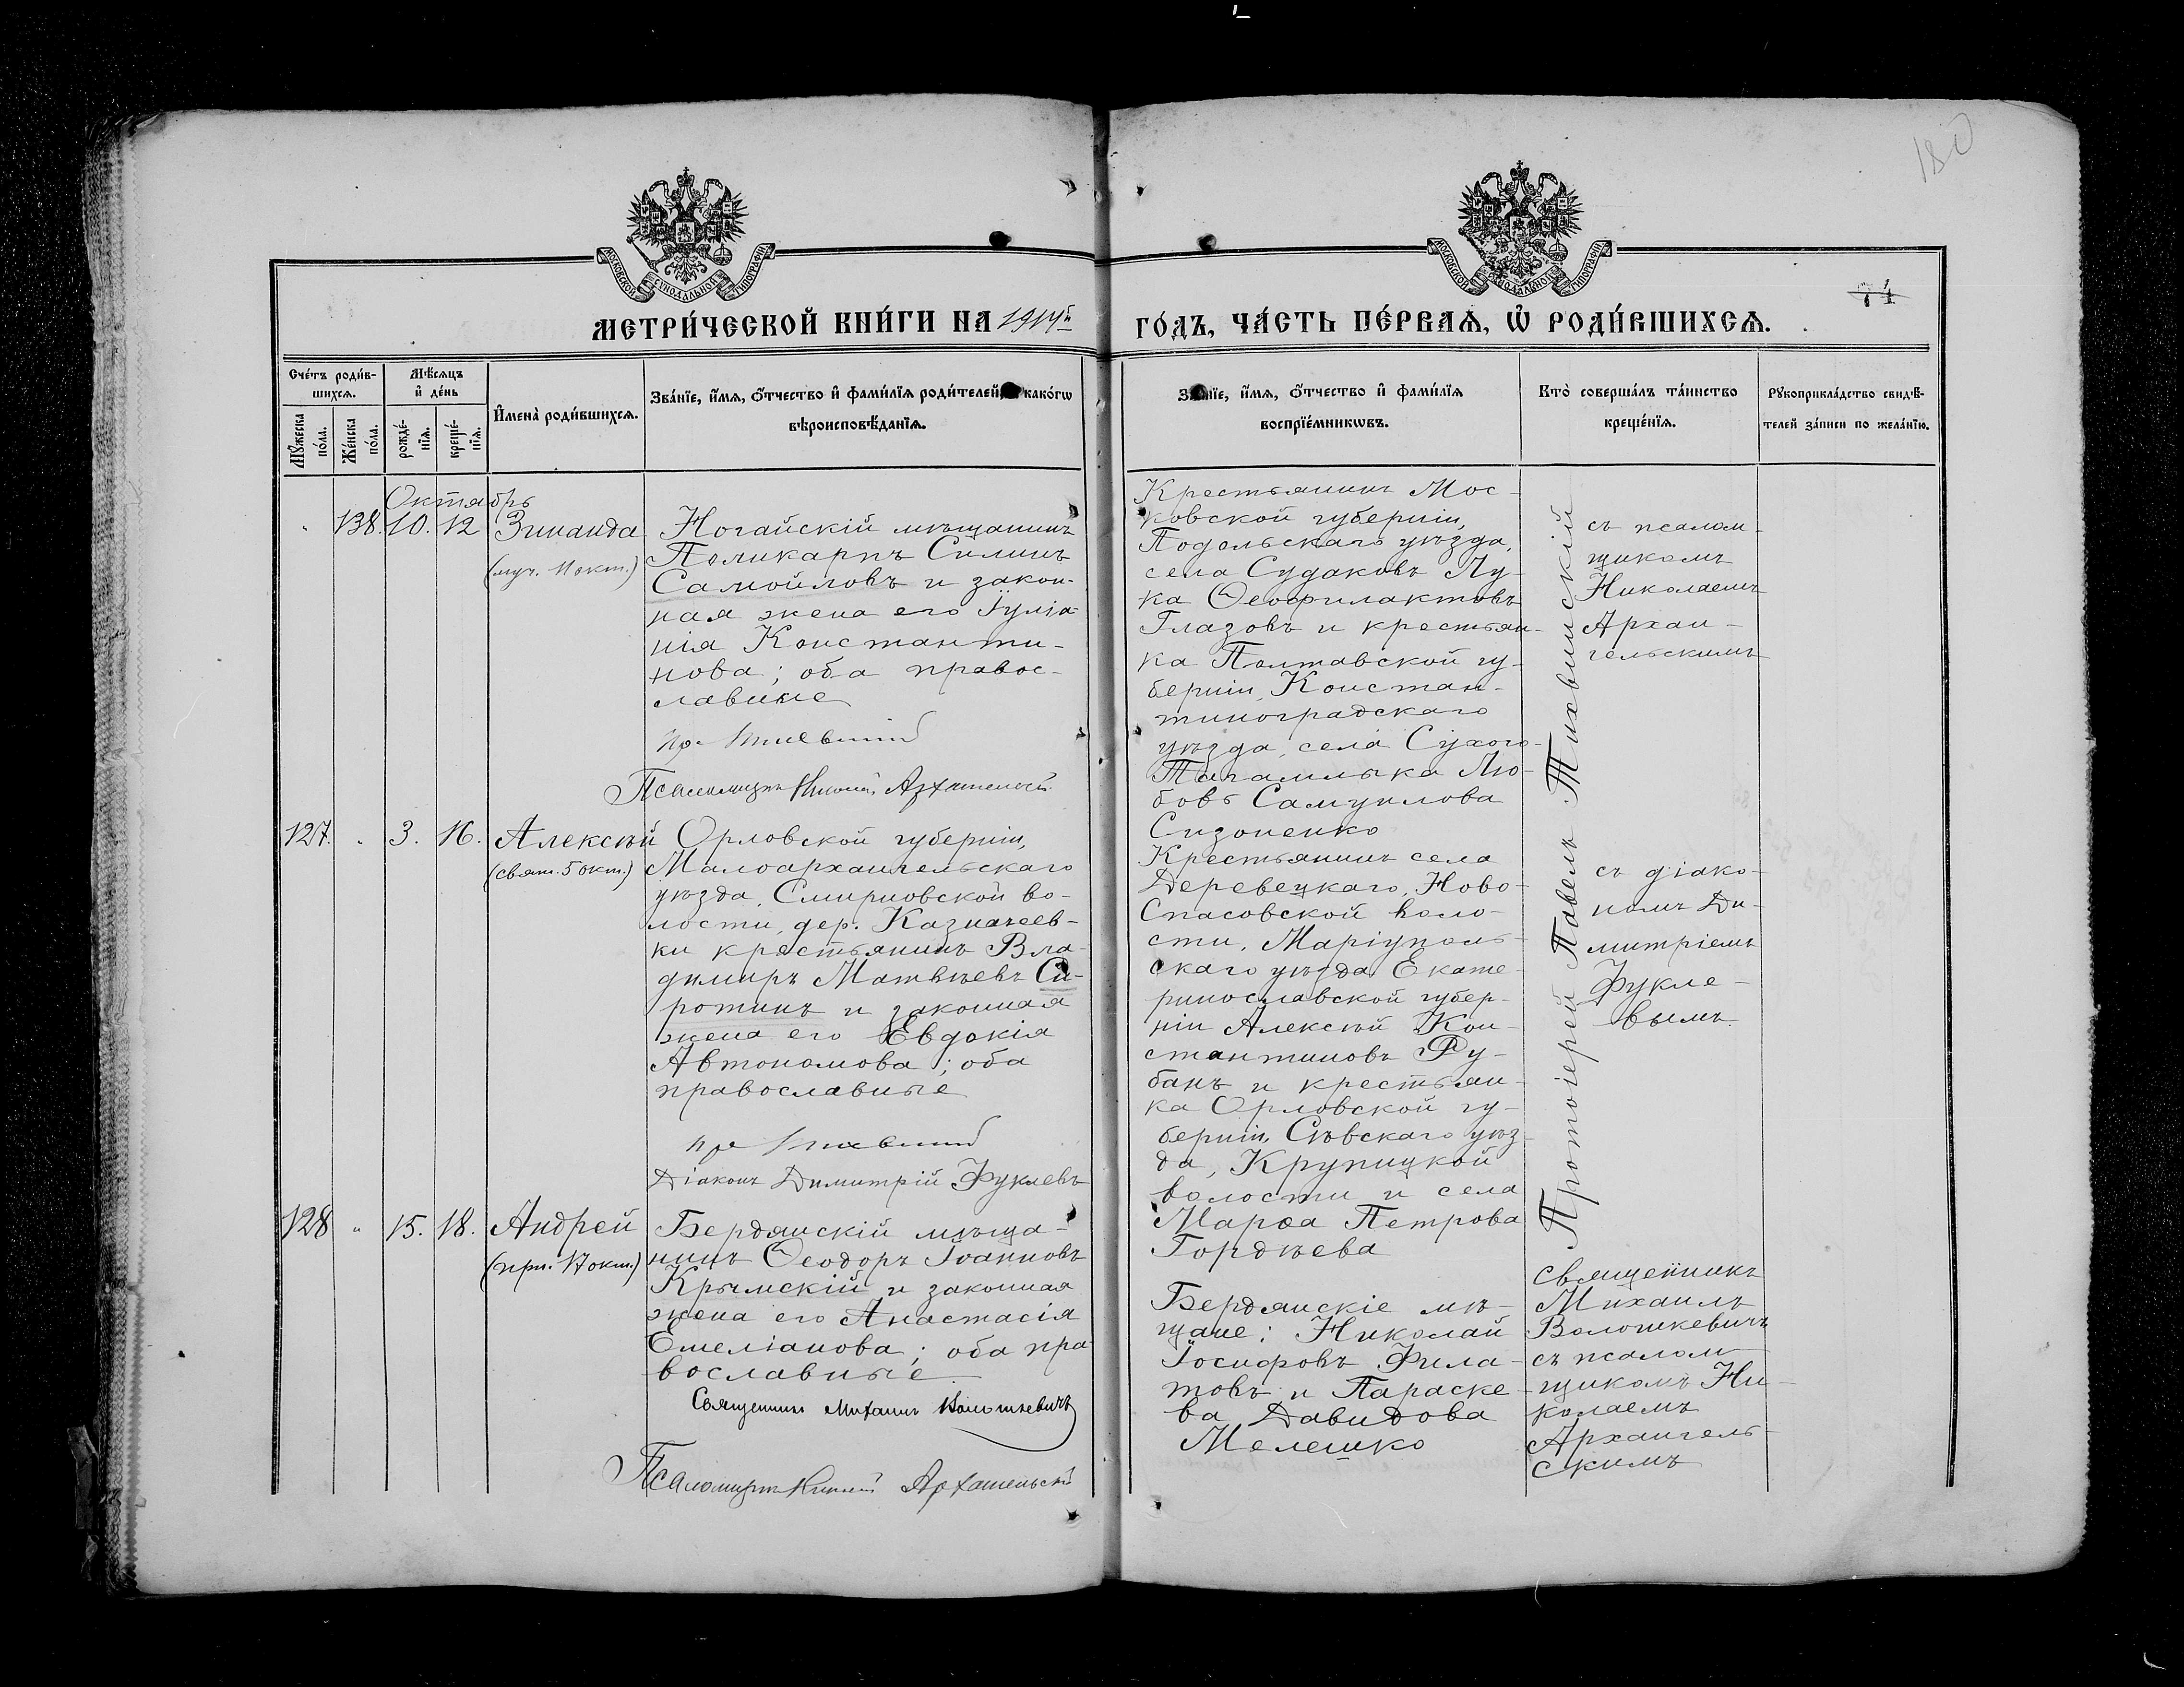 180
МОСКОВСКОЙ СУНОДАЛЬНОЙ ТИПОГРАФІИ
МОСКОВСКОЙ СУНОДАЛЬНОЙ ТИПОГРАФІИ
74
МЕТРИ́ЧЕСКОЙ КНИ́ГИ НА
ГО́ДЪ, ЧА́СТЬ ПЕ́РВАѦ, Ѡ҆ РОДИ́ВШИХСѦ.
Сче́тъ роди́в-
шихсѧ.
Мꙋ́жеска
по́ла.
Же́нска
по́ла.
Мѣ́сѧцъ
и҆ де́нь
рожде́-
нїѧ.
креще́-
нїѧ.
И҆мена̀ роди́вшихсѧ.
Зва́нїе, и҆́мѧ, ѻ҆́тчество и҆ фами́лїѧ роди́телей, како́гѡ
вѣроисповѣ́данїѧ.
Зва́нїе, и҆́мѧ, ѻ҆́тчество и҆ фами́лїѧ
воспрїе́мникѡвъ.
Кто̀ соверша́лъ та́инство
креще́нїѧ.
Рꙋкоприкла́дство свидѣ́-
телей за́писи по жела́нїю.
Октябрь
138. 10. 12 Зинаида
(муч. 11 окт.)
Ногайскій мѣщанинъ
Поликарпъ Силинъ
Самойловъ и закон-
ная жена его Іуліа-
нія Константи-
нова; оба правос-
лавные
Псаломщикъ Николай Архангельскій
Крестьянинъ Мос-
ковской губерніи,
Подольскаго уѣзда,
села Судаковъ Лу-
ка Ѳеофилактовъ
Глазовъ и крестьян-
ка Полтавской гу-
берніи, Констан-
тиноградскаго
уѣзда, села Сухого
Тагамлыка Лю-
бовь Самуилова
Сизоненко
Протоіерей Павелъ Тихвинскій
съ псалом-
щикомъ
Николаемъ
Архан-
гельскимъ
127. " 3. 16. Алексѣй
(свят. 5 окт.)
Орловской губерніи,
Малоархангельскаго
уѣзда, Смирновской во-
лости, дер. Казначеев-
ки крестьянинъ Вла-
димиръ Матвѣевъ Си-
ротинъ и законная
жена его Евдокія
Автономова; оба
православные
Діаконъ Димитрій Фуклевъ
Крестьянинъ села
Деревецкаго, Ново-
Спасовской воло-
сти, Маріуполь-
скаго уѣзда Екате-
ринославской губер-
ніи Алексѣй Кон-
стантиновъ Ру-
банъ и крестьян-
ка Орловской гу-
берніи, Сѣвскаго уѣз-
да, Крупицкой
волости и села
Марѳа Петрова
Гордѣева
съ діако-
номъ Ди-
митріемъ
Фукле-
вымъ.
128 " 15. 18. Андрей
(прп. 17 окт.)
Бердянскій мѣща-
нинъ Ѳеодоръ Іоанновъ
Крымскій и законная
жена его Анастасія
Емеліанова; оба пра-
вославные
Священникъ Михаилъ Волошкевичъ
Псаломщикъ Николай Архангельскій
Бердянскіе мѣ-
щане: Николай
Іосифовъ Фила-
товъ и Параске-
ва Давидова
Мелешко
Священникъ
Михаилъ
Волошкевичъ
съ псалом-
щикомъ Ни-
колаемъ
Архангель-
скимъ